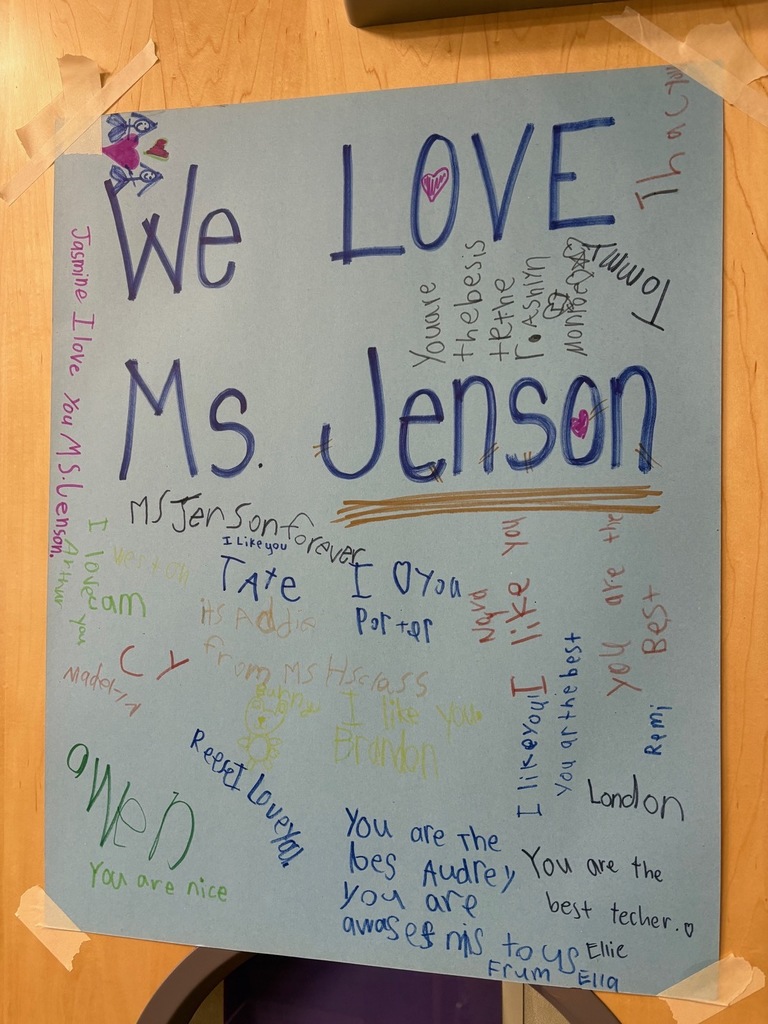 We LOVE
Ms. Jenson
Tommy
You are
the besis
Jasmine I love You M.S. Lenson.
MS Jenson forever
I Like you
TAte
I O You
Porter
I like you
Nava
you are the
Best
Remi
I love you
Arthur
am
its Addie
from Ms Hsclass
CY
Madelyn
bunny
I like you
Brandon
I like you!
You ar the best
London
Reese I Love you.
owen
You are nice
You are The
bes Audrey
you are
You are the
best techer.
Ellie
to us
Frum Ella